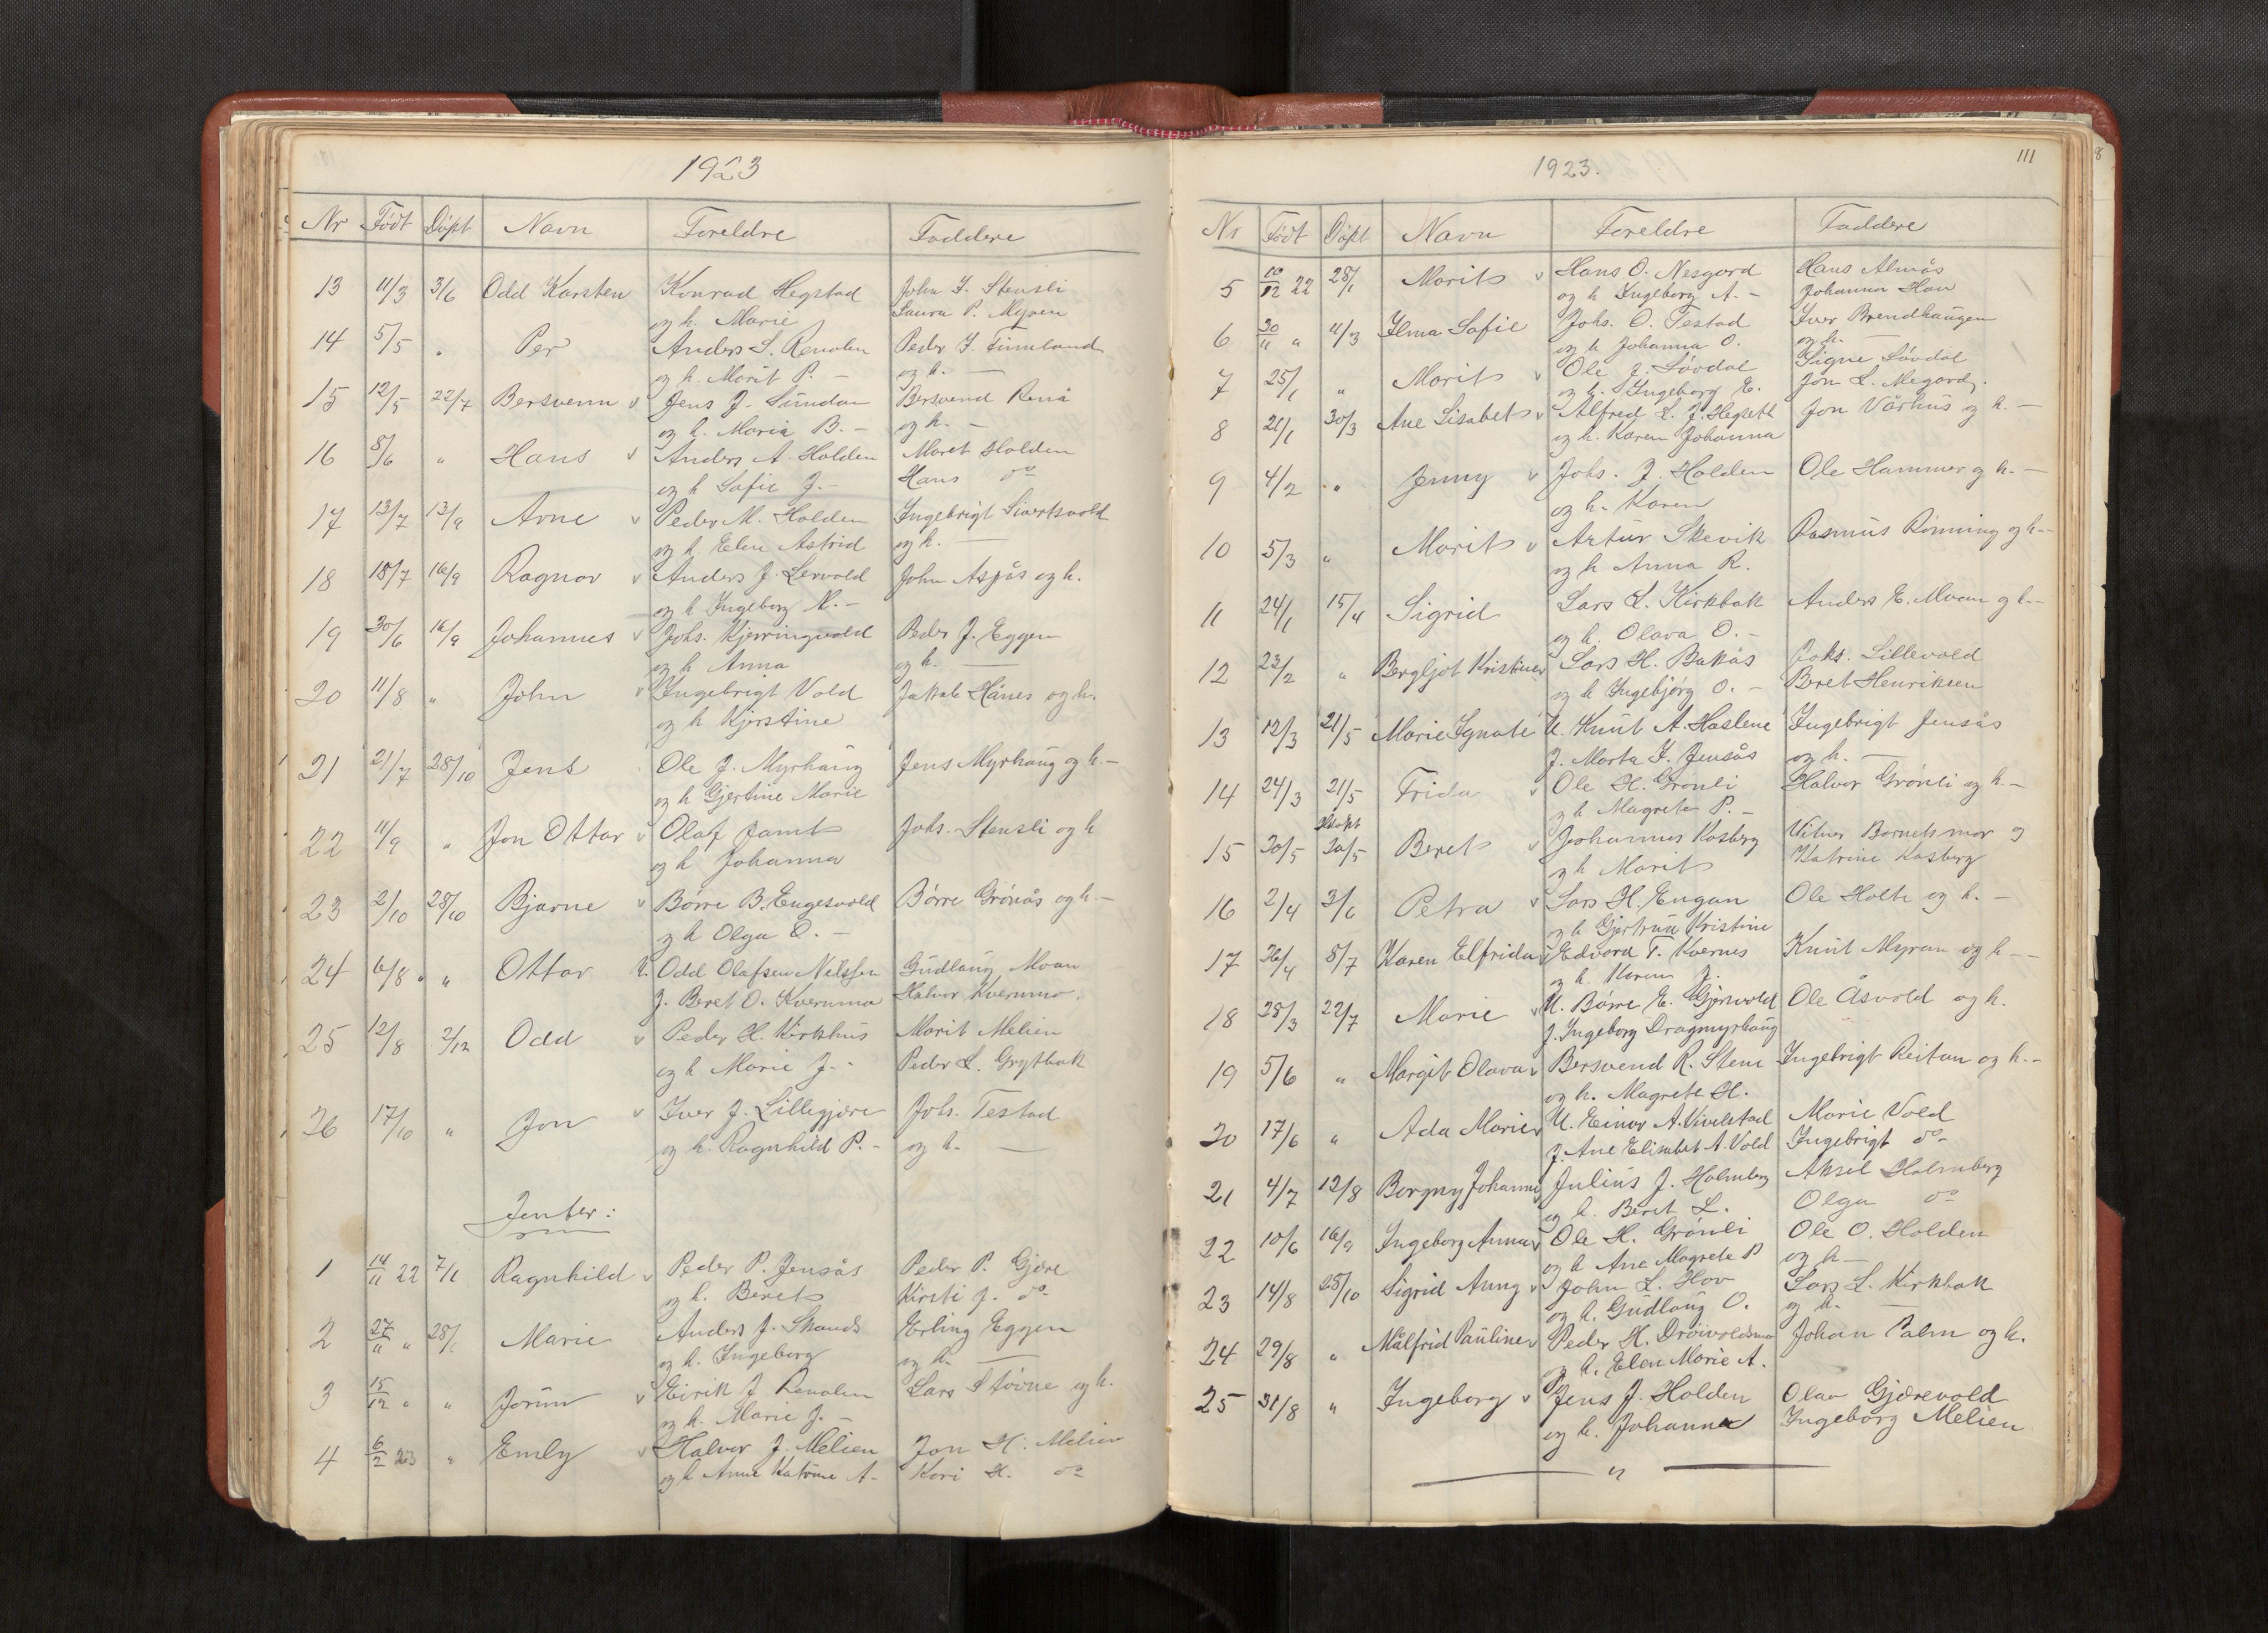 1923
Nr Født Døpt Navn Foreldre Faddere
13 11/3 3/6 Odd Karsten Konrad Hegstad John J. Stensli
og h. Marie Laura P. Myren
14 5/5 " Per Anders S. Renolen Peder J.
og h. Marit P. - og h. —
15 12/5 22/7 Bersvenn v Jens J. Sundan Bersvend Renå
og h. Maria B. - og h. -
16 8/6 " Hans v Anders A. Holden Maret Holden
og h Sofie J. - Hans do
17 13/7 13/9 Arne v Peder M. Holden Ingebrigt Sivertsvold
og h. Elen Astrid og h. —
18 18/7 16/9 Ragnar v Anders J. Lervold John Aspås og h.
og h Ingeborg N. -
19 30/6 16/9 Johannes v Johs. Kjerringvold Peder J. Eggen
og h Anna og h. —
20 11/8 " John v Ingebrigt Vold Jakob Hånes og h.
og h Kjerstine
21 21/7 28/10 Jens Ole J. Myrhaug Jens Myrhaug og h. -
og h Gjertine Marie
22 11/9 " Jon Ottar v Olaf Jamt Johs. Stensli og h
og h Johanna
23 2/10 28/10 Bjarne v Børre B. Engesvold Børre Grönås og h -
og h Olga O. -
24 6/8 " " Ottar U. Odd Olafsen Nilssen Gudlaug Moan
J. Beret O. Kvernmo Halvor Kvernmo.
25 12/8 2/12 Odd v Peder H. Kirkhus Marit Melien
og h Marie J. - Peder L. Grytbak
26 17/10 " Jon v Iver J. Lillegjære Johs. Testad
og h. Ragnhild P. - og h. —
Jenter:
1 14/11 22 7/1 Ragnhild v Peder P. Jensås Peder P. Gjære
og h. Beret Kirsti J. do
2 27/11 " 28/1 Marie Anders J. Skauds Erling Eggen
og h. Ingeborg og h. —
3 15/12 " " Jorun v Eirik J Renolen Lars Støvne og h.
og h. Marie J. -
4 6/2 23 " Emly v Halvor J. Melien Jon H. Melien
og h Anne Katrine A- Kari H. do
1923.
111
8
Nr Født Døpt Navn Foreldre Faddere
5 10/12 22 28/1 Marit v Hans O. Nesgard Hans Almås
og h Ingeborg A. - Johanna Hau
6 30/11 " 4/3 Ilma Sofie Johs. O. Testad Iver Brendhaugen
og h Johanna O. og h. —
7 25/1 " Marit v Ole J. Løvdal Signe Løvdal
og h. Ingeborg E. Jon L. Megard.
8 21/1 30/3 Ane Lisabet v Alfred L. J. Hegseth Jon Vårhus og h. -
og h. Karen Johanna
9 4/2 " Jenny v Johs. J. Holden Ole Hammer og h. -
og h. Karen
10 5/3 " Marit v Artur Skevik Rasmus Rönning og h -
og h Anna R.
11 24/1 15/4 Sigrid Lars L. Kirkbak Anders E. Moan og h -
og h. Olava O. -
12 23/2 " Bergljot Kristine v Lars H. Bakås Johs. Lillevold
og h Ingebjørg O. - Beret Henriksen
13 12/3 21/5 Marie Ignate U. Knut A. Haslene Ingebrigt Jensås
J. Marta J. Jensås og h. —
14 24/3 21/5 Frida v Ole H. Grönli Halvor Grönli og h. -
og h Magrete P. -
15 30/5 30/5 Beret v Johannes Kosberg Vitner Barnets mor og
og h Marit Katrine Kosberg
16 2/4 3/6 Petra v Lars H. Engan Ole Holte og h. -
og h Gjertrud Kristine
17 26/4 8/7 Karen Elfrida v Edvard T. Kvernes Knut Myran og h - -
og h. Karen J.
18 28/3 22/7 Marie v U. Børre E. Gjervold Ole Åsvold og h.
J. Ingeborg Dragmyrhaug
19 5/6 " Margit Olava v Bersvend R. Stene Ingebrigt Reitan og h. -
og h. Magrete H.
20 17/6 " Ada Marie v U. Einar A. Kvelstad Marie Vold
J. Ane Elisabet A. Vold Ingebrigt do
21 4/7 12/8 Borgny Johanne v Julius J. Holmberg Aksel Holmberg
og h. Beret L. Olga do
22 10/6 16/9 Ingeborg Anna v Ole H. Grönli Ole O. Holden
og h Ane Magrete P og h -
23 14/8 28/10 Sigrid Aung v John L. Hov Lars L. Kirkbak
og h. Gudlaug O. og h. —
24 29/8 " Målfrid Pauline v Peder H. Drøivoldsmo Johan Palm og h.
og h. Elen Marie A.
25 31/8 " Ingeborg v Jens J. Holden Olav Gjærevold
og h. Johanna Ingeborg Melien
— " —